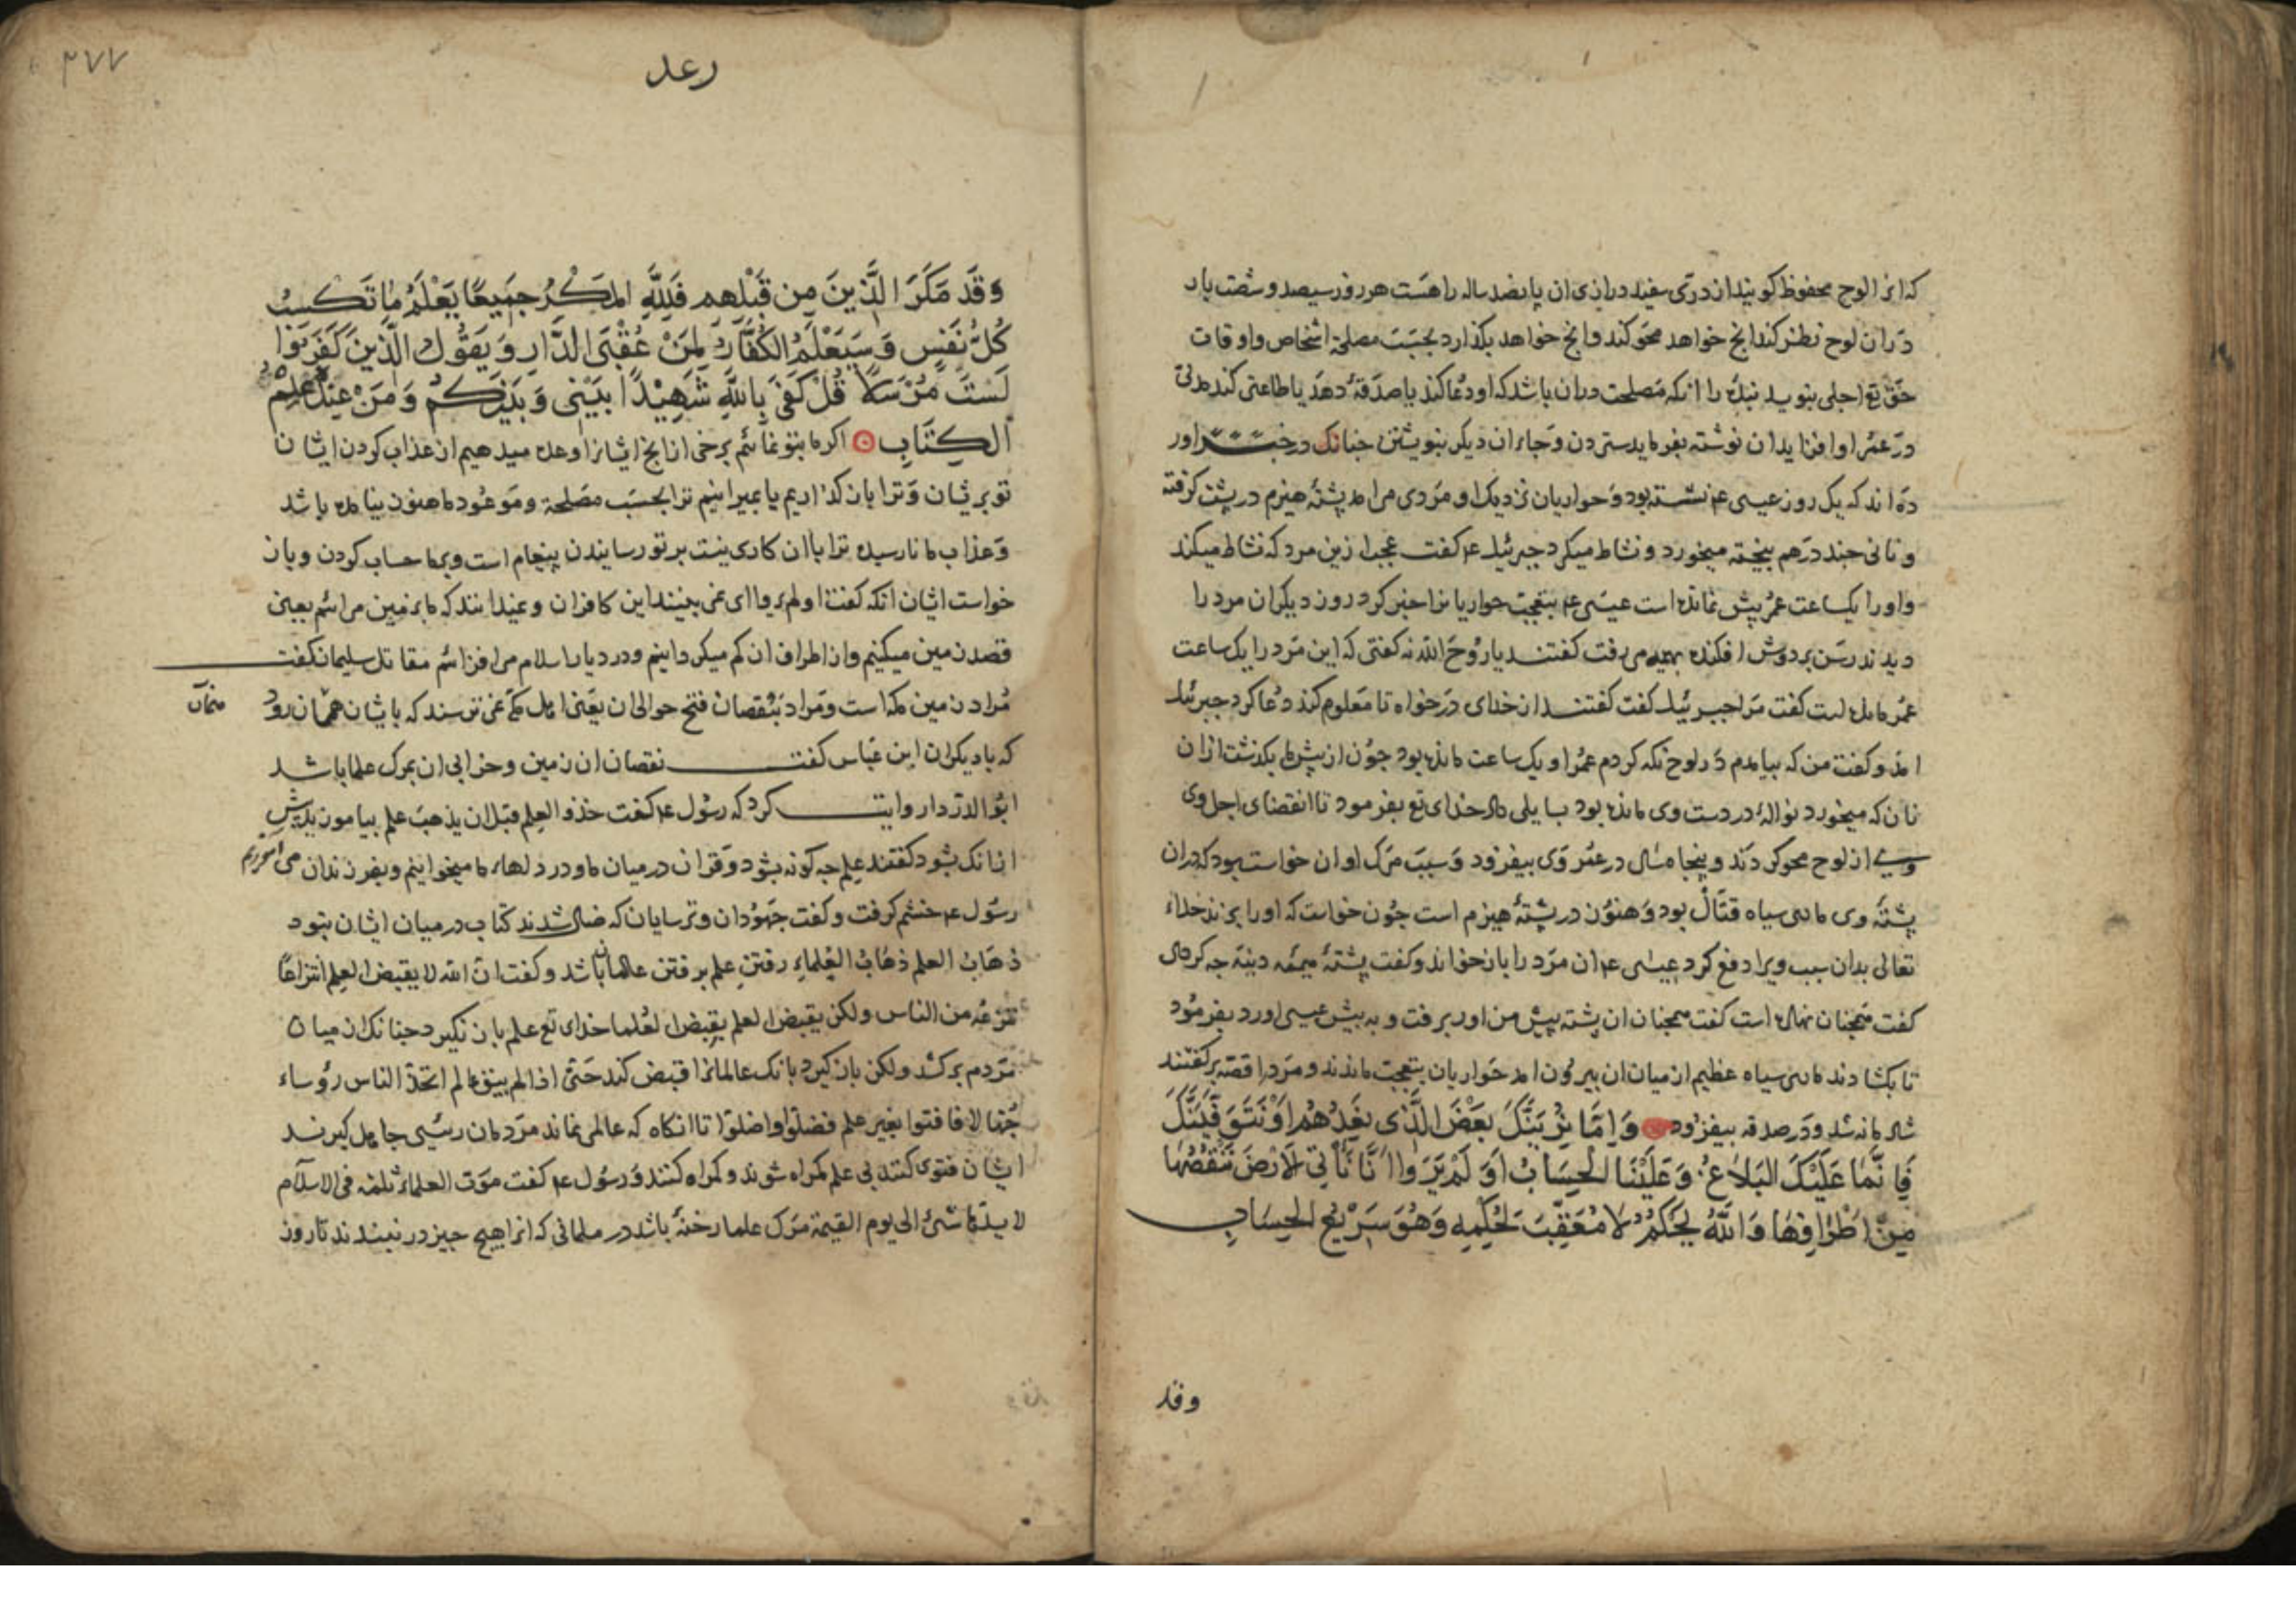 که انرا لوح محفوظ کویند از دری سفید درازی ان پانصد ساله راهست هر روز سیصد و شصت بار
دران لوح نظر کند انچ خواهد محو کند وانچ خواهد بکذارد بحسب مصلحة اشخاص واوقات
حق تع اجلی بنوید بنده را انکه مصلحت دران باشد که او دعا کند یا صدقۀ دهد یا طاعتی کند
در عمر او افزاید ان نوشته بفرماید ستردن وجاء ان دیکر بنویشتن جنانک در خبر اور
ده اند که یک روز عیسی عم نشسته بود و حواریان نزدیک او و مردی می امد پشتۀ هیزم در پشت کرفته
و نانی جند درهم بیخته میخورد و نشاط میکرد جبرئیل عم کفت عجب ازین مرد که نشاط میکند
واورا یکساعت عمر بیش نمانده است عیسی عم بتعجب حواریانرا خبر کرد روز دیکر ان مرد را
دیدند رسن بر دوش افکنده می رفت کفتند یا روح الله نه کفتی که این مرد را یک ساعت
عمر مانده است کفت مرا جبرئیل کفت کفتند از خدای درخواه تا معلوم کند دعا کرد جبرئیل
امد و کفت من که بیامدم در لوح نکه کردم عمر او یک ساعت مانده بود جون از پیش ما بکذشت ازان
نان که میخورد نوالۀ در دست وی مانده بود بسایلی داد خدای تع بفرمود تا انقضای اجل وی
وی از لوح محو کردند و پنجاه سال در عمر وی بیفزود و سبب مرک او ان خواست بود که دران
پشتۀ وی ماری سیاه قتال بود و هنوز در پشتۀ هیزم است جون خواست که اورا بزند خداء
تعالی بدان سبب ویرا دفع کرد عیسی عم ان مرد را بازخواند و کفت پشتۀ هیمه دینه جه کردی
کفت همجنان نهاده است کفت همجنان ان پشته پیش من اور برفت و به پیش عیسی اورد بفرمود
تا بکشادند ماری سیاه عظیم از میان ان بیرون امد حواریان بتعجب ماندند و مرد را قصه برکفتند
شادمانه شد و در صدقه بیفزود وَاِمَّا نُرِیَنَّكَ بَعْضَ الَّذِی نَعِدُهُمْ اَوْ نَتَوَفَّیَنَّكَ
فَاِنَّمَا عَلَیْكَ الْبَلَاغُ وَعَلَیْنَا الْحِسَابُ اَوَلَمْ یَرَوْا اَنَّا نَأْتِی الْاَرْضَ نَنْقُصُهَا
مِنْ اَطْرَافِهَا وَاللَّهُ یَحْكُمُ لَا مُعَقِّبَ لِحُكْمِهِ وَهُوَ سَرِیْعُ الْحِسَابِ
وقد
۳۷۷
رعد
وَقَدْ مَكَرَ الَّذِینَ مِن قَبْلِهِم فَلِلَّهِ الْمَكْرُ جَمِیعًا یَعْلَمُ مَا تَكْسِبُ
كُلُّ نَفْسٍ وَسَیَعْلَمُ الْكُفَّارُ لِمَنْ عُقْبَی الدَّارِ وَیَقُولُ الَّذِینَ كَفَرُوا
لَسْتَ مُرْسَلًا قُلْ كَفَی بِاللَّهِ شَهِیْدًا بَیْنِی وَبَیْنَكُمْ وَمَنْ عِنْدَهُ عِلْمُ
الْكِتَابِ اکر ما بتو نمائیم برخی از انج ایشانرا وعده میدهیم از عذاب کردن ایشان
تو بر ایشان و ترا بازکذاریم یا بمیرانیم ترا بحسب مصلحة و موعود ما هنوز بنامده باشد
وعذاب ما نارسیده ترا با ان کاری نیست بر تو رسایندن پیغام است و بر ما حساب کردن وباز
خواست ایشان انکه کفت اولم یروا ای نمی بینند این کافران و نمیدانند که ما بزمین می ائیم یعنی
قصد زمین میکنیم و از اطراف ان کم میکردانیم و در دیار اسلام می افزائیم مقاتل سلیمان کفت
مراد زمین مکه است و مراد بنقصان فتح حوالی ان یعنی اهل مکه نمی ترسند که با ایشان همان رود
که با دیکران ابن عباس کفت نقصان ان زمین و خرابی ان بمرک علما باشد
ابو الدردا روایت کرد که رسول عم کفت خذو العلم قبل ان یذهب علم بیاموزید پیش
از انک بشود کفتند علم جه کونه بشود و قران در میان ما و در دلهاء ما میخوانیم و بفرزندان می اموزیم
رسول عم خشم کرفت و کفت جهودان و ترسایان که ضال شدند کتاب در میان ایشان بنود
ذهاب العلم ذهاب العلماء رفتن علم برفتن عالمان باشد و کفت ان الله لا یقبض العلم انتزاعا
تنزعه من الناس ولکن یقبض العلم بقبض العلما خدای تع علم باز نکیرد جنانک از میان
مردم برکشد ولکن بازکیرد بانک عالمانرا قبض کند حتی اذا لم یبق عالم اتخذ الناس رؤساء
جهالا فافتوا بغیر علم فضلوا واضلوا تا انکاه که عالمی نماند مردمان رئیسی جاهل کیرند
ایشان فتوی کنند بی علم کمراه شوند و کمراه کنند و رسول عم کفت موت العلماء ثلمة فی الاسلام
لا یسدها شیئ الی یوم القیمة مرک علما رخنۀ باشد در مسلمانی که انرا هیج جیز در نبندد تا روز